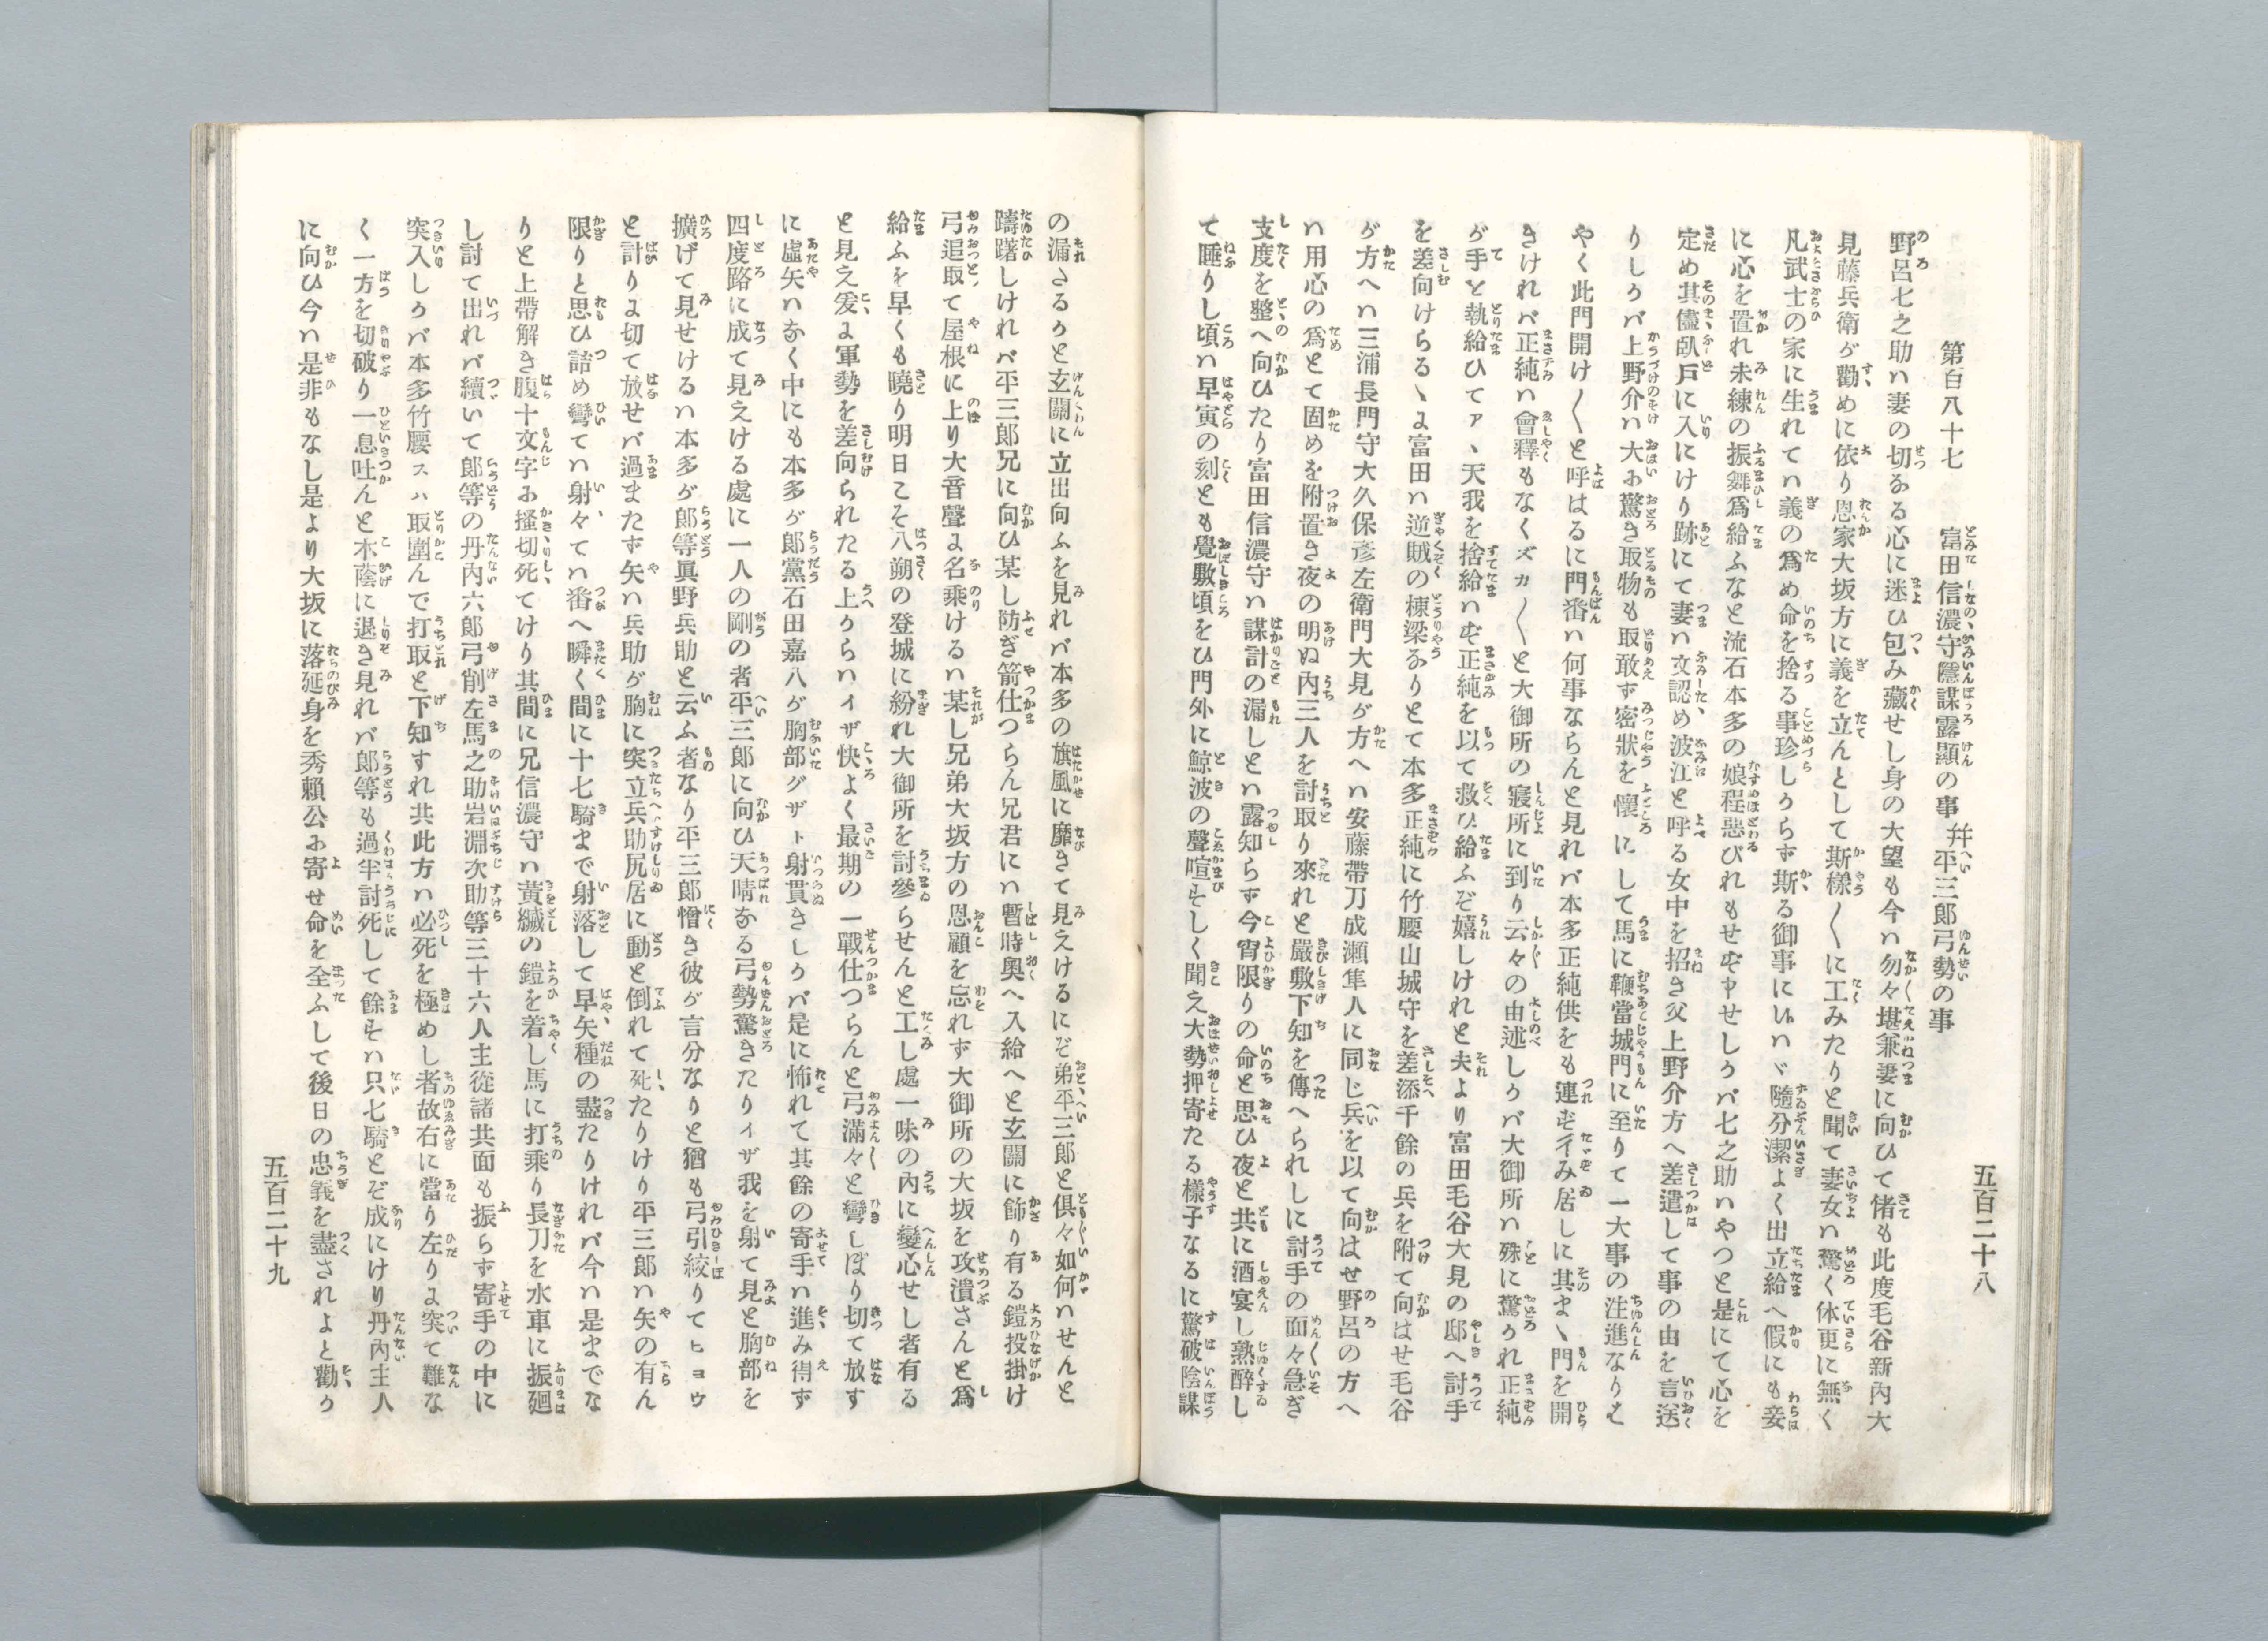 第百八十七　富田信濃守隱謀露顯の事并平三郎弓勢の事
野呂七之助ハ妻の切なる心に迷ひ包み藏せし身の大望も今ハ勿々堪兼妻に向ひて偖も此度毛谷新內大
見藤兵衛が勸めに依り恩家大坂方に義を立んとして斯樣〱に工みたりと聞て妻女ハ驚く体更に無く
凡武士の家に生れてハ義の爲め命を捨る事珍しからず斯る御事に候ハヾ隨分潔よく出立給へ假にも妾
に心を置れ未練の振舞爲給ふなと流石本多の娘程悪びれもせず申せしかバ七之助ハやつと是にて心を
定め其儘臥戶に入にけり跡にて妻ハ文認め波江と呼る女中を招き父上野介方へ差遣して事の由を言送
りしかバ上野介ハ大に驚き取物も取敢ず密狀を懷にして馬に鞭當城門に至りて一大事の注進なりと
やく此門開け〱と呼はるに門番ハ何事ならんと見れバ本多正純供をも連ず彳み居しに其まヽ門を開
きけれバ正純ハ會釋もなくズカ〱と大御所の寢所に到り云々の由述しかバ大御所ハ殊に驚かれ正純
が手を執給ひてアヽ天我を捨給ハず正純を以て救ひ給ふぞ嬉しけれと夫より富田毛谷大見の邸へ討手
を差向けらるヽに富田ハ逆賊の棟梁なりとて本多正純に竹腰山城守を差添千餘の兵を附て向はせ毛谷
が方へハ三浦長門守大久保彦左衛門大見が方へハ安藤帶刀成瀬隼人に同じ兵を以て向はせ野呂の方へ
ハ用心の爲とて固めを附置き夜の明ぬ內三人を討取り來れと嚴敷下知を傳へられしに討手の面々急ぎ
支度を整へ向ひたり富田信濃守ハ謀計の漏しとハ露知らず今宵限りの命と思ひ夜と共に酒宴し熟醉し
て睡りし頃ハ早寅の刻とも覺敷頃をひ門外に鯨波の聲喧をしく聞え大勢押寄たる樣子なるに驚破陰謀
五百二十八
の漏さるかと玄關に立出向ふを見れバ本多の旗風に靡きて見えけるにぞ弟平三郎と俱々如何ハせんと
躊躇しけれバ平三郎兄に向ひ某し防ぎ箭仕つらん兄君にハ暫時奧へ入給へと玄關に飾り有る鎧投掛け
弓追取て屋根に上り大音聲に名乘けるハ某し兄弟大坂方の恩顧を忘れず大御所の大坂を攻潰さんと爲
給ふを早くも曉り明日こそ八朔の登城に紛れ大御所を討參らせんと工し處一味の內に變心せし者有る
と見え爰に軍勢を差向られたる上からハイザ快よく最期の一戰仕つらんと弓滿々と彎しぼり切て放す
に虛矢ハなく中にも本多が郎黨石田嘉八が胸部グザト射貫きしかバ是に怖れて其餘の寄手ハ進み得ず
四度路に成て見えける處に一人の剛の者平三郎に向ひ天晴なる弓勢驚きたりイザ我を射て見と胸部を
擴げて見せけるハ本多が郎等眞野兵助と云ふ者なり平三郎憎き彼が言分なりと猶も弓引絞りてヒョウ
と計りに切て放せバ過またず矢ハ兵助が胸に突立兵助尻居に動と倒れて死たりけり平三郎ハ矢の有ん
限りと思ひ詰め彎てハ射々てハ番へ瞬く間に十七騎まで射落して早矢種の盡たりけれバ今ハ是までな
りと上帶解き腹十文字に搔切死てけり其間に兄信濃守ハ黃縅の鎧を着し馬に打乘り長刀を水車に振廻
し討て出れバ續いて郎等の丹內六郎弓削左馬之助岩淵次助等三十六人主從諸共面も振らず寄手の中に
突入しかバ本多竹腰スハ取圍んで打取と下知すれ共此方ハ必死を極めし者故右に當り左りに突て難な
く一方を切破り一息吐んと木蔭に退き見れバ郎等も過半討死して餘をハ只七騎とぞ成にけり丹內主人
に向ひ今ハ是非もなし是より大坂に落延身を秀賴公に寄せ命を全ふして後日の忠義を盡されよと勸か
五百二十九